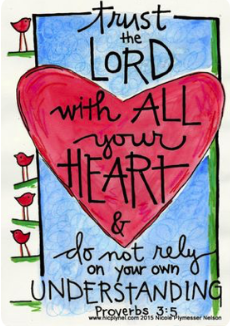 trust
the
LORD
with ALL
your
HEART
&
do not rely
on your own
UNDERSTANDING
Proverbs 3:5
www.nicplynel.com 2015 Nicole Plymesser Nelson